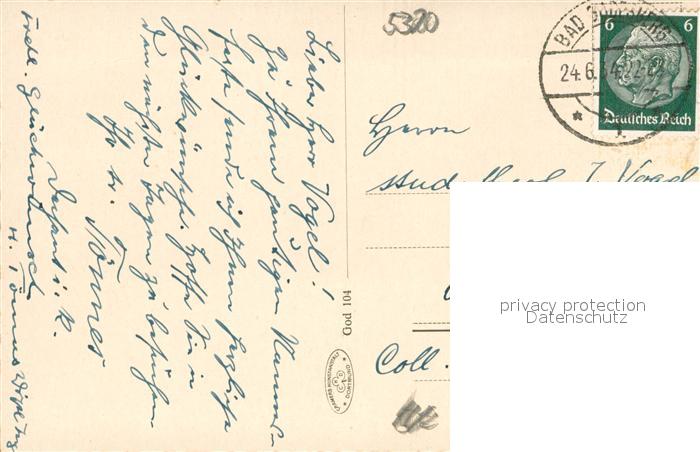 5320
Lieber Herr Vogel!
Zu Ihrem heutigen Namens-
feste sende ich Ihnen herzliche
Glückwünsche. Hoffe Sie in
den nächsten Tagen zu besuchen
Ihr tr. Tönnes
Frdl. Glückwunsch
H. Tönnes
God 104
CRAMERS KUNSTANSTALT
DORTMUND
BAD GODESBERG
24.6.34
6 6
Deutsches Reich
Herrn
stud. J. Vogel
Coll.
privacy protection
Datenschutz